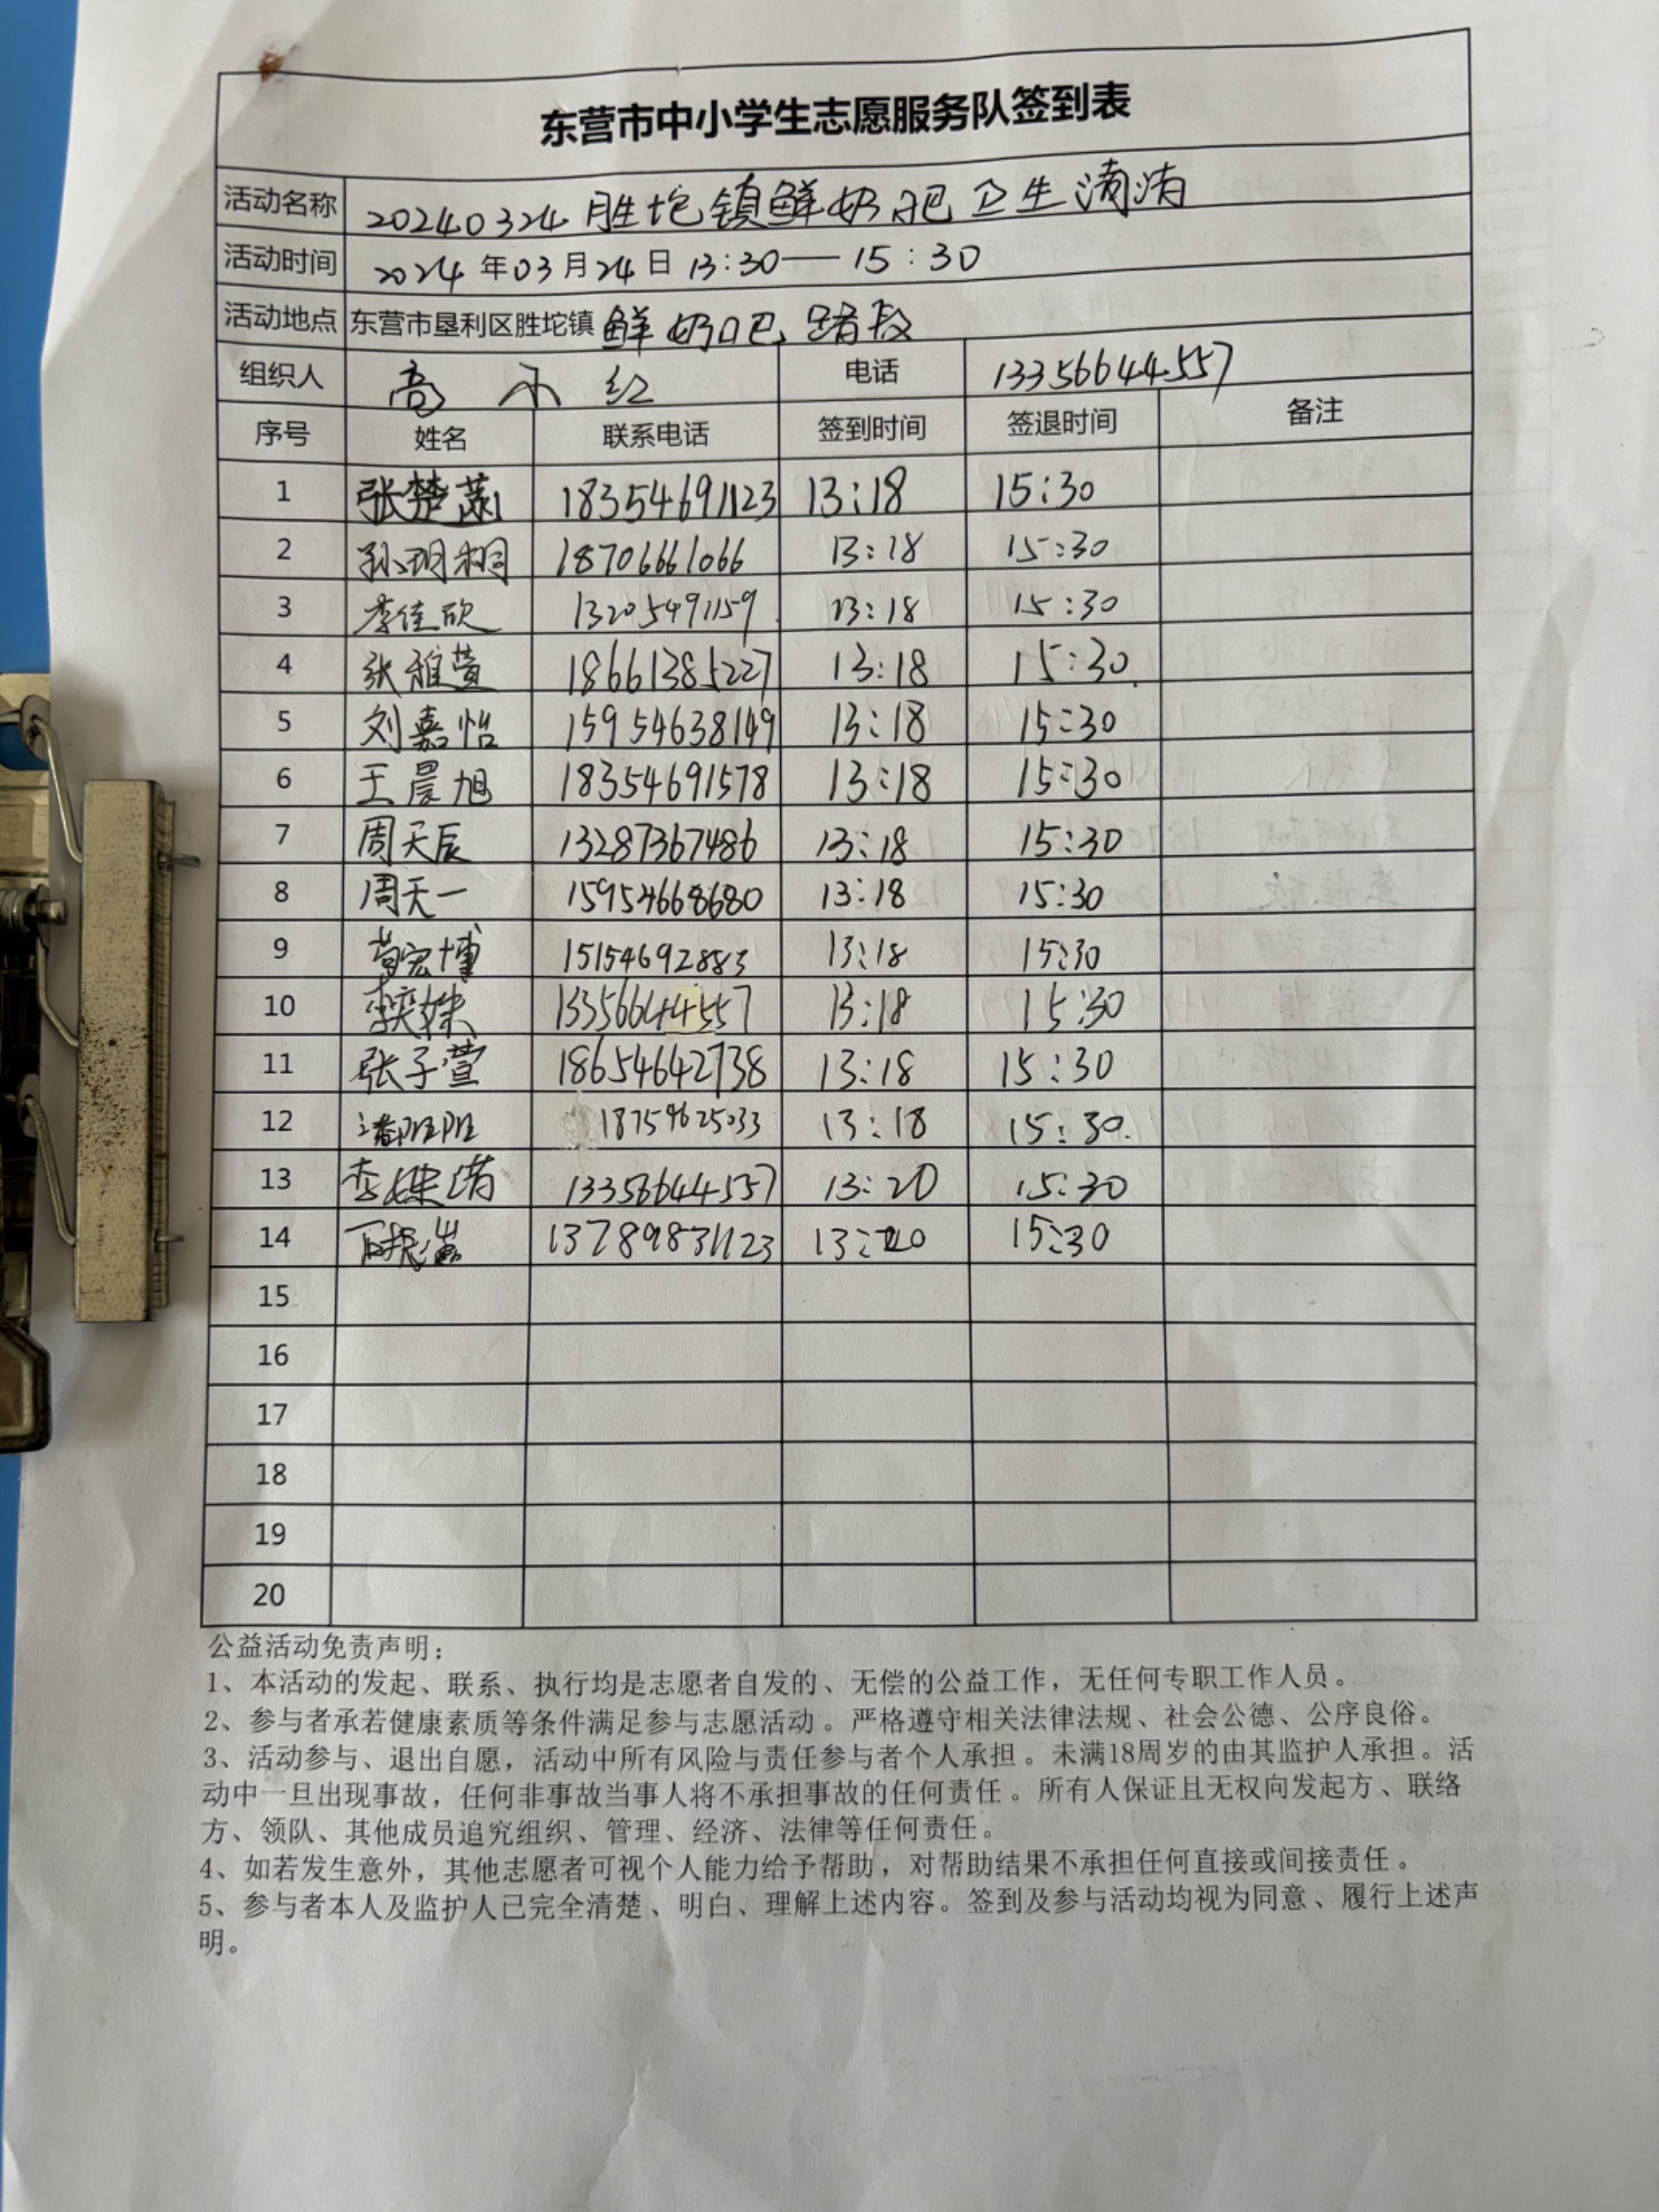 东营市中小学生志愿服务队签到表
活动名称 20240324胜坨镇鲜奶吧卫生清洁
活动时间 2024年03月24日 13:30——15:30
活动地点 东营市垦利区胜坨镇鲜奶吧路段
组织人 高小红 电话 13356644557
序号 姓名 联系电话 签到时间 签退时间 备注
1 张楚 18354691123 13:18 15:30
2 孙玥桐 18706661066 13:18 15:30
3 李佳欣 13205491159 13:18 15:30
4 张雅萱 18661385227 13:18 15:30
5 刘嘉怡 15954638149 13:18 15:30
6 王晨旭 18354691578 13:18 15:30
7 周天辰 13287367486 13:18 15:30
8 周天一 15954668680 13:18 15:30
9 宏博 15154692883 13:18 15:30
10 李奕姝 13356644557 13:18 15:30
11 张子萱 18654642738 13:18 15:30
12 13:18 15:30
13 李姝 13356644557 13:20 15:30
14 13789831123 13:20 15:30
15
16
17
18
19
20
公益活动免责声明：
1、本活动的发起、联系、执行均是志愿者自发的、无偿的公益工作，无任何专职工作人员。
2、参与者承若健康素质等条件满足参与志愿活动。严格遵守相关法律法规、社会公德、公序良俗。
3、活动参与、退出自愿，活动中所有风险与责任参与者个人承担。未满18周岁的由其监护人承担。活
动中一旦出现事故，任何非事故当事人将不承担事故的任何责任。所有人保证且无权向发起方、联络
方、领队、其他成员追究组织、管理、经济、法律等任何责任。
4、如若发生意外，其他志愿者可视个人能力给予帮助，对帮助结果不承担任何直接或间接责任。
5、参与者本人及监护人已完全清楚、明白、理解上述内容。签到及参与活动均视为同意、履行上述声
明。